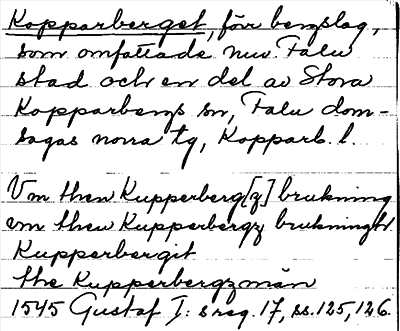 Kopparberget, förr bergslag,
som omfattade nuv. Falu
stad och en del av Stora
Kopparbergs sn, Falu dom-
sagas norra tg, Kopparb. l.
Vm then Kupperberg[z] brukning
om then Kupperbergz brukning
Kupperbergit
the Kupperbergzmän
1545 Gustaf I: s reg. 17, ss. 125, 126.